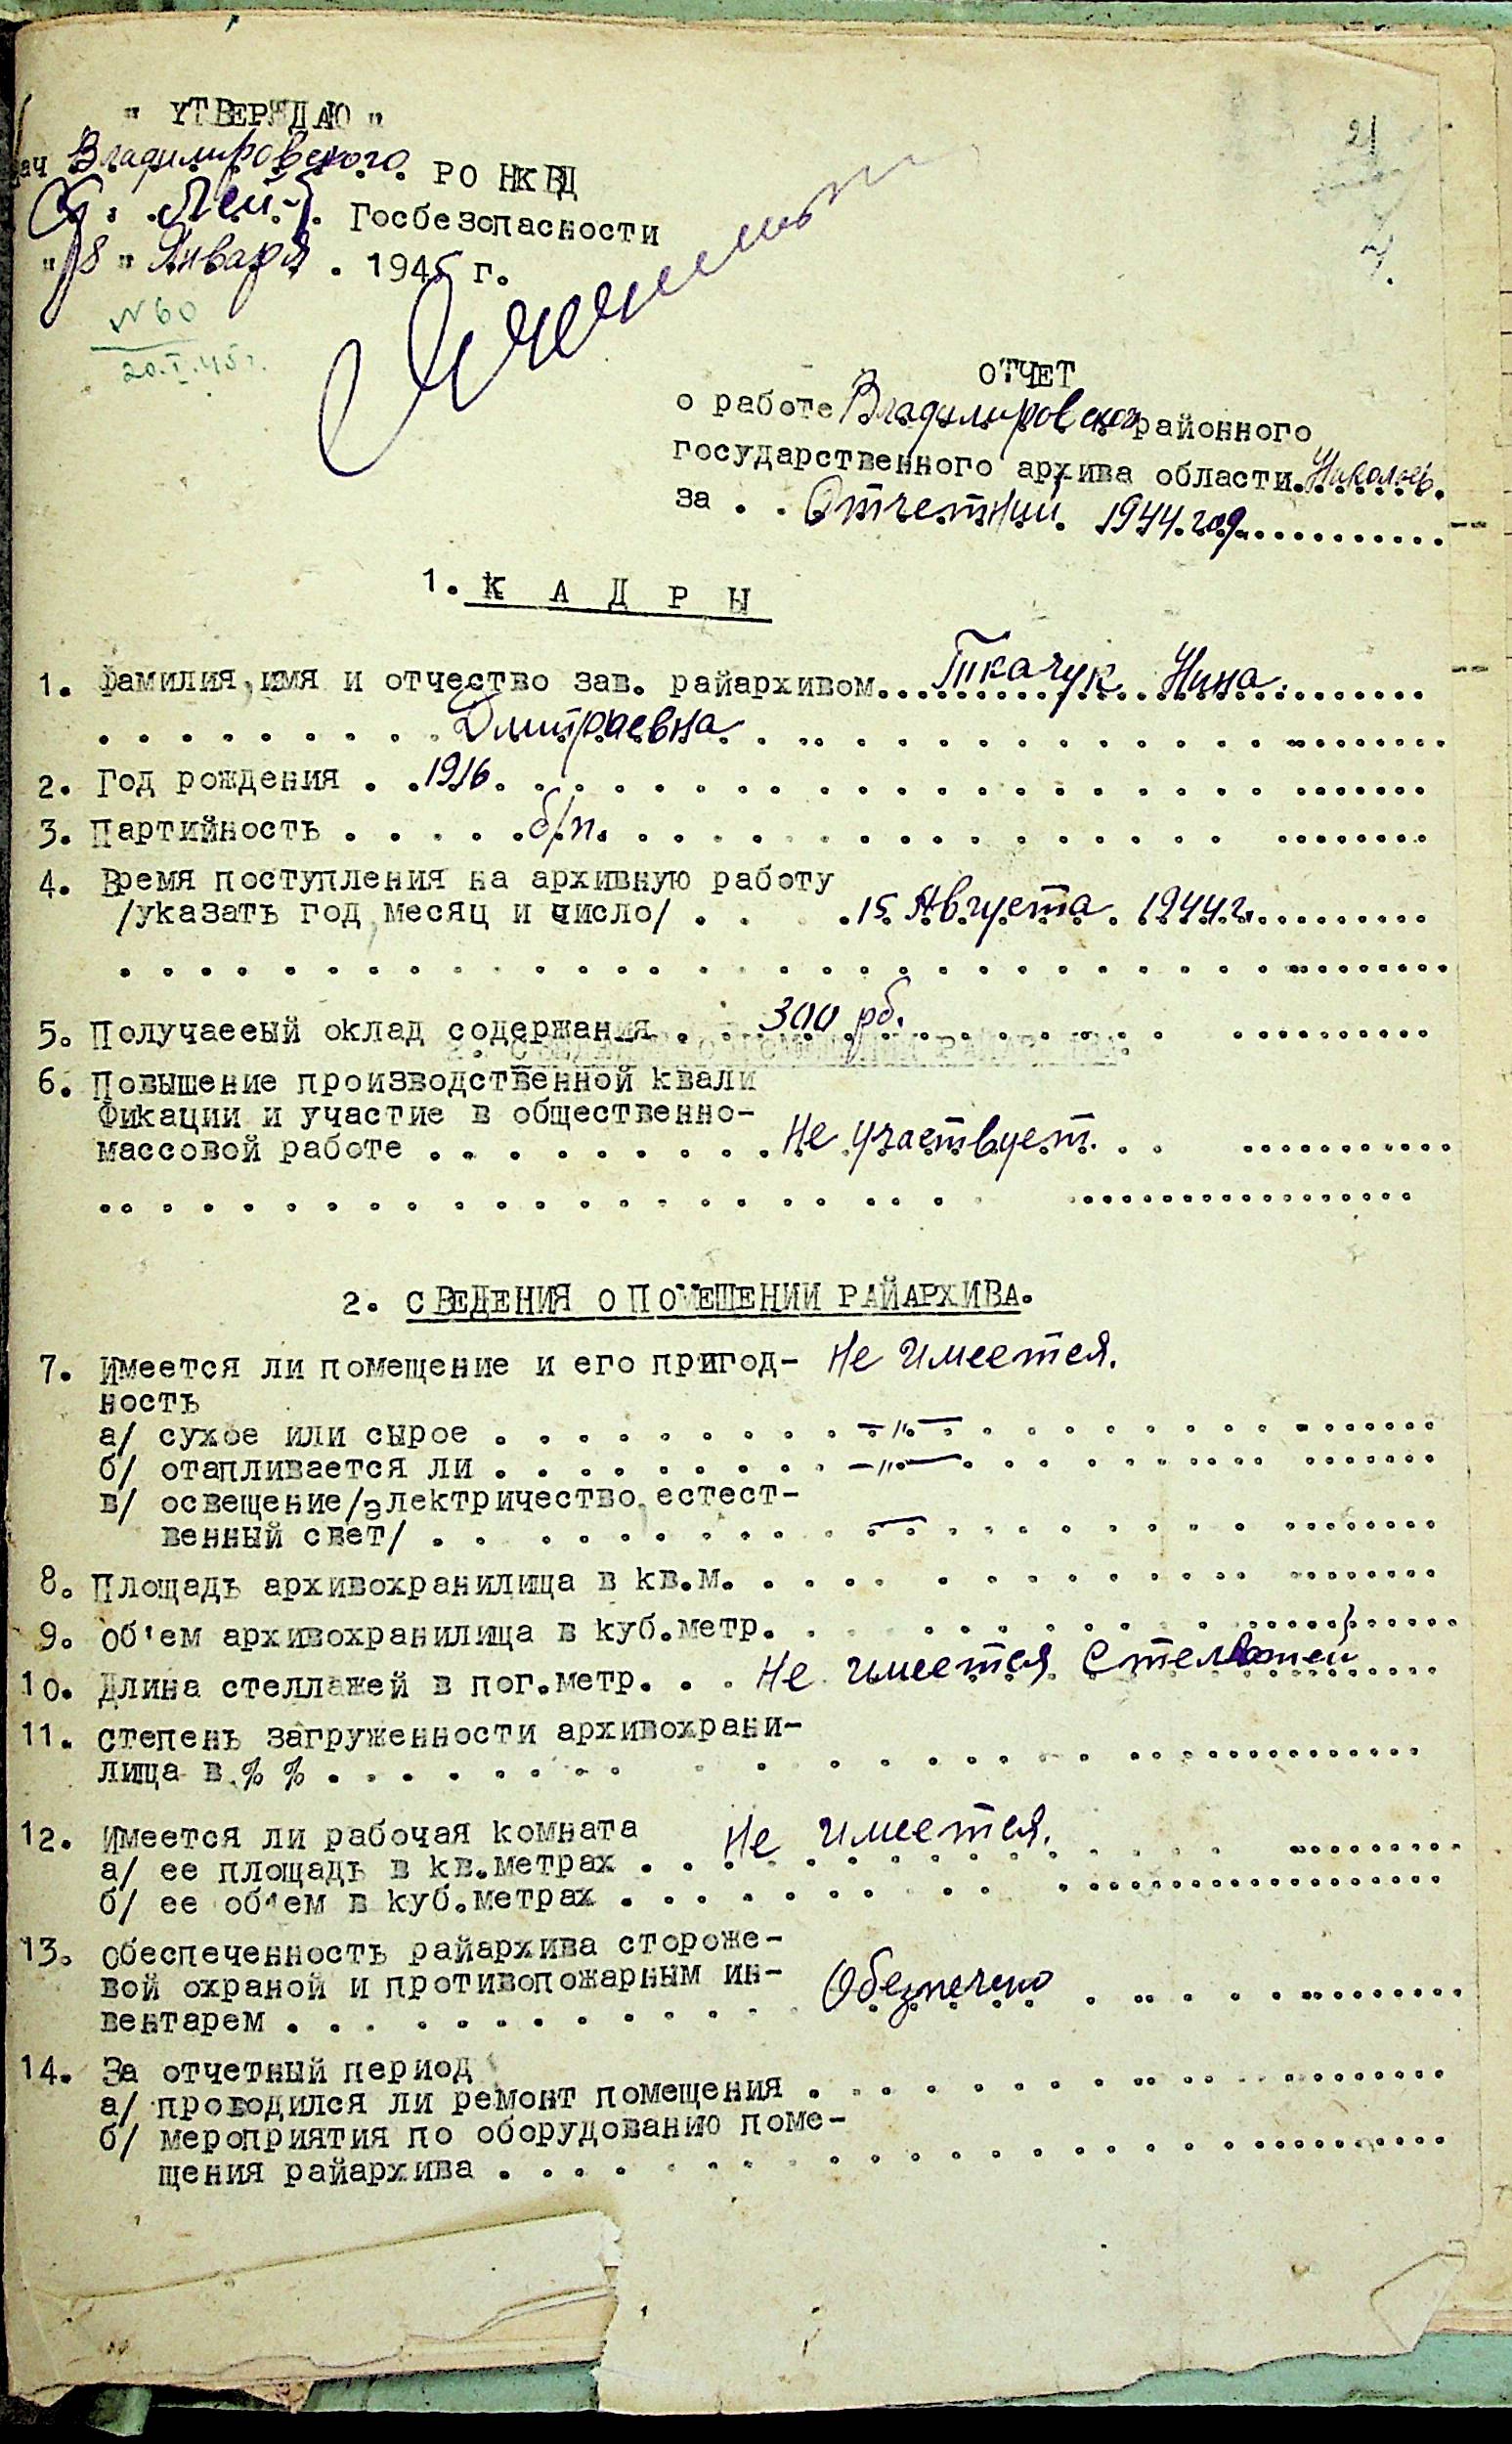 " УТВЕРЖДАЮ "
нач Владимировского РО НКВД
Ст. Лей-т. Госбезопасности
"18" Января . 1945 г.
№ 60
20.I.45 г.
21
ОТЧЕТ
о работе Владимировского районного
государственного архива области. Николаев.
за . . Отчетный 1944 год
1. К А Д Р Ы
1. Фамилия, имя и отчество зав. райархивом. Ткачук Нина
Дмитраевна
2. Год рождения . . 1916
3. Партийность . . . . . б/п.
4. Время поступления на архивную работу
/указать год, месяц и число/ . . . 15 Августа 1944 г.
5. Получаееый оклад содержания . . 300 рб.
6. Повышение производственной квали
фикации и участие в общественно-
массовой работе . . . . . . . . . Не участвует.
2. СВЕДЕНИЯ О ПОМЕШЕНИИ РАЙАРХИВА.
7. Имеется ли помещение и его пригод- Не имеется.
ность
а/ сухое или сырое . . . . . . . . . —"—
б/ отапливается ли . . . . . . . . . —"—
в/ освещение/электричество, естест-
венный свет/ . . . . . . . . . . —
8. Площадь архивохранилища в кв.м. . . . .
9. об'ем архивохранилища в куб.метр. . .
10. Длина стеллажей в пог.метр. . . Не имеется Стелажей
11. степень загруженности архивохрани-
лища в % % . . . . . . . .
12. Имеется ли рабочая комната Не имеется.
а/ ее площадь в кв.метрах . . .
б/ ее об'ем в куб.метрах . . . . . . .
13. Обеспеченность райархива стороже-
вой охраной и противопожарным ин- Обезпечено
вентарем . . . . . . . . . . . .
14. За отчетный период
а/ проводился ли ремонт помещения . . . . .
б/ мероприятия по оборудованию поме-
щения райархива . . . . . .